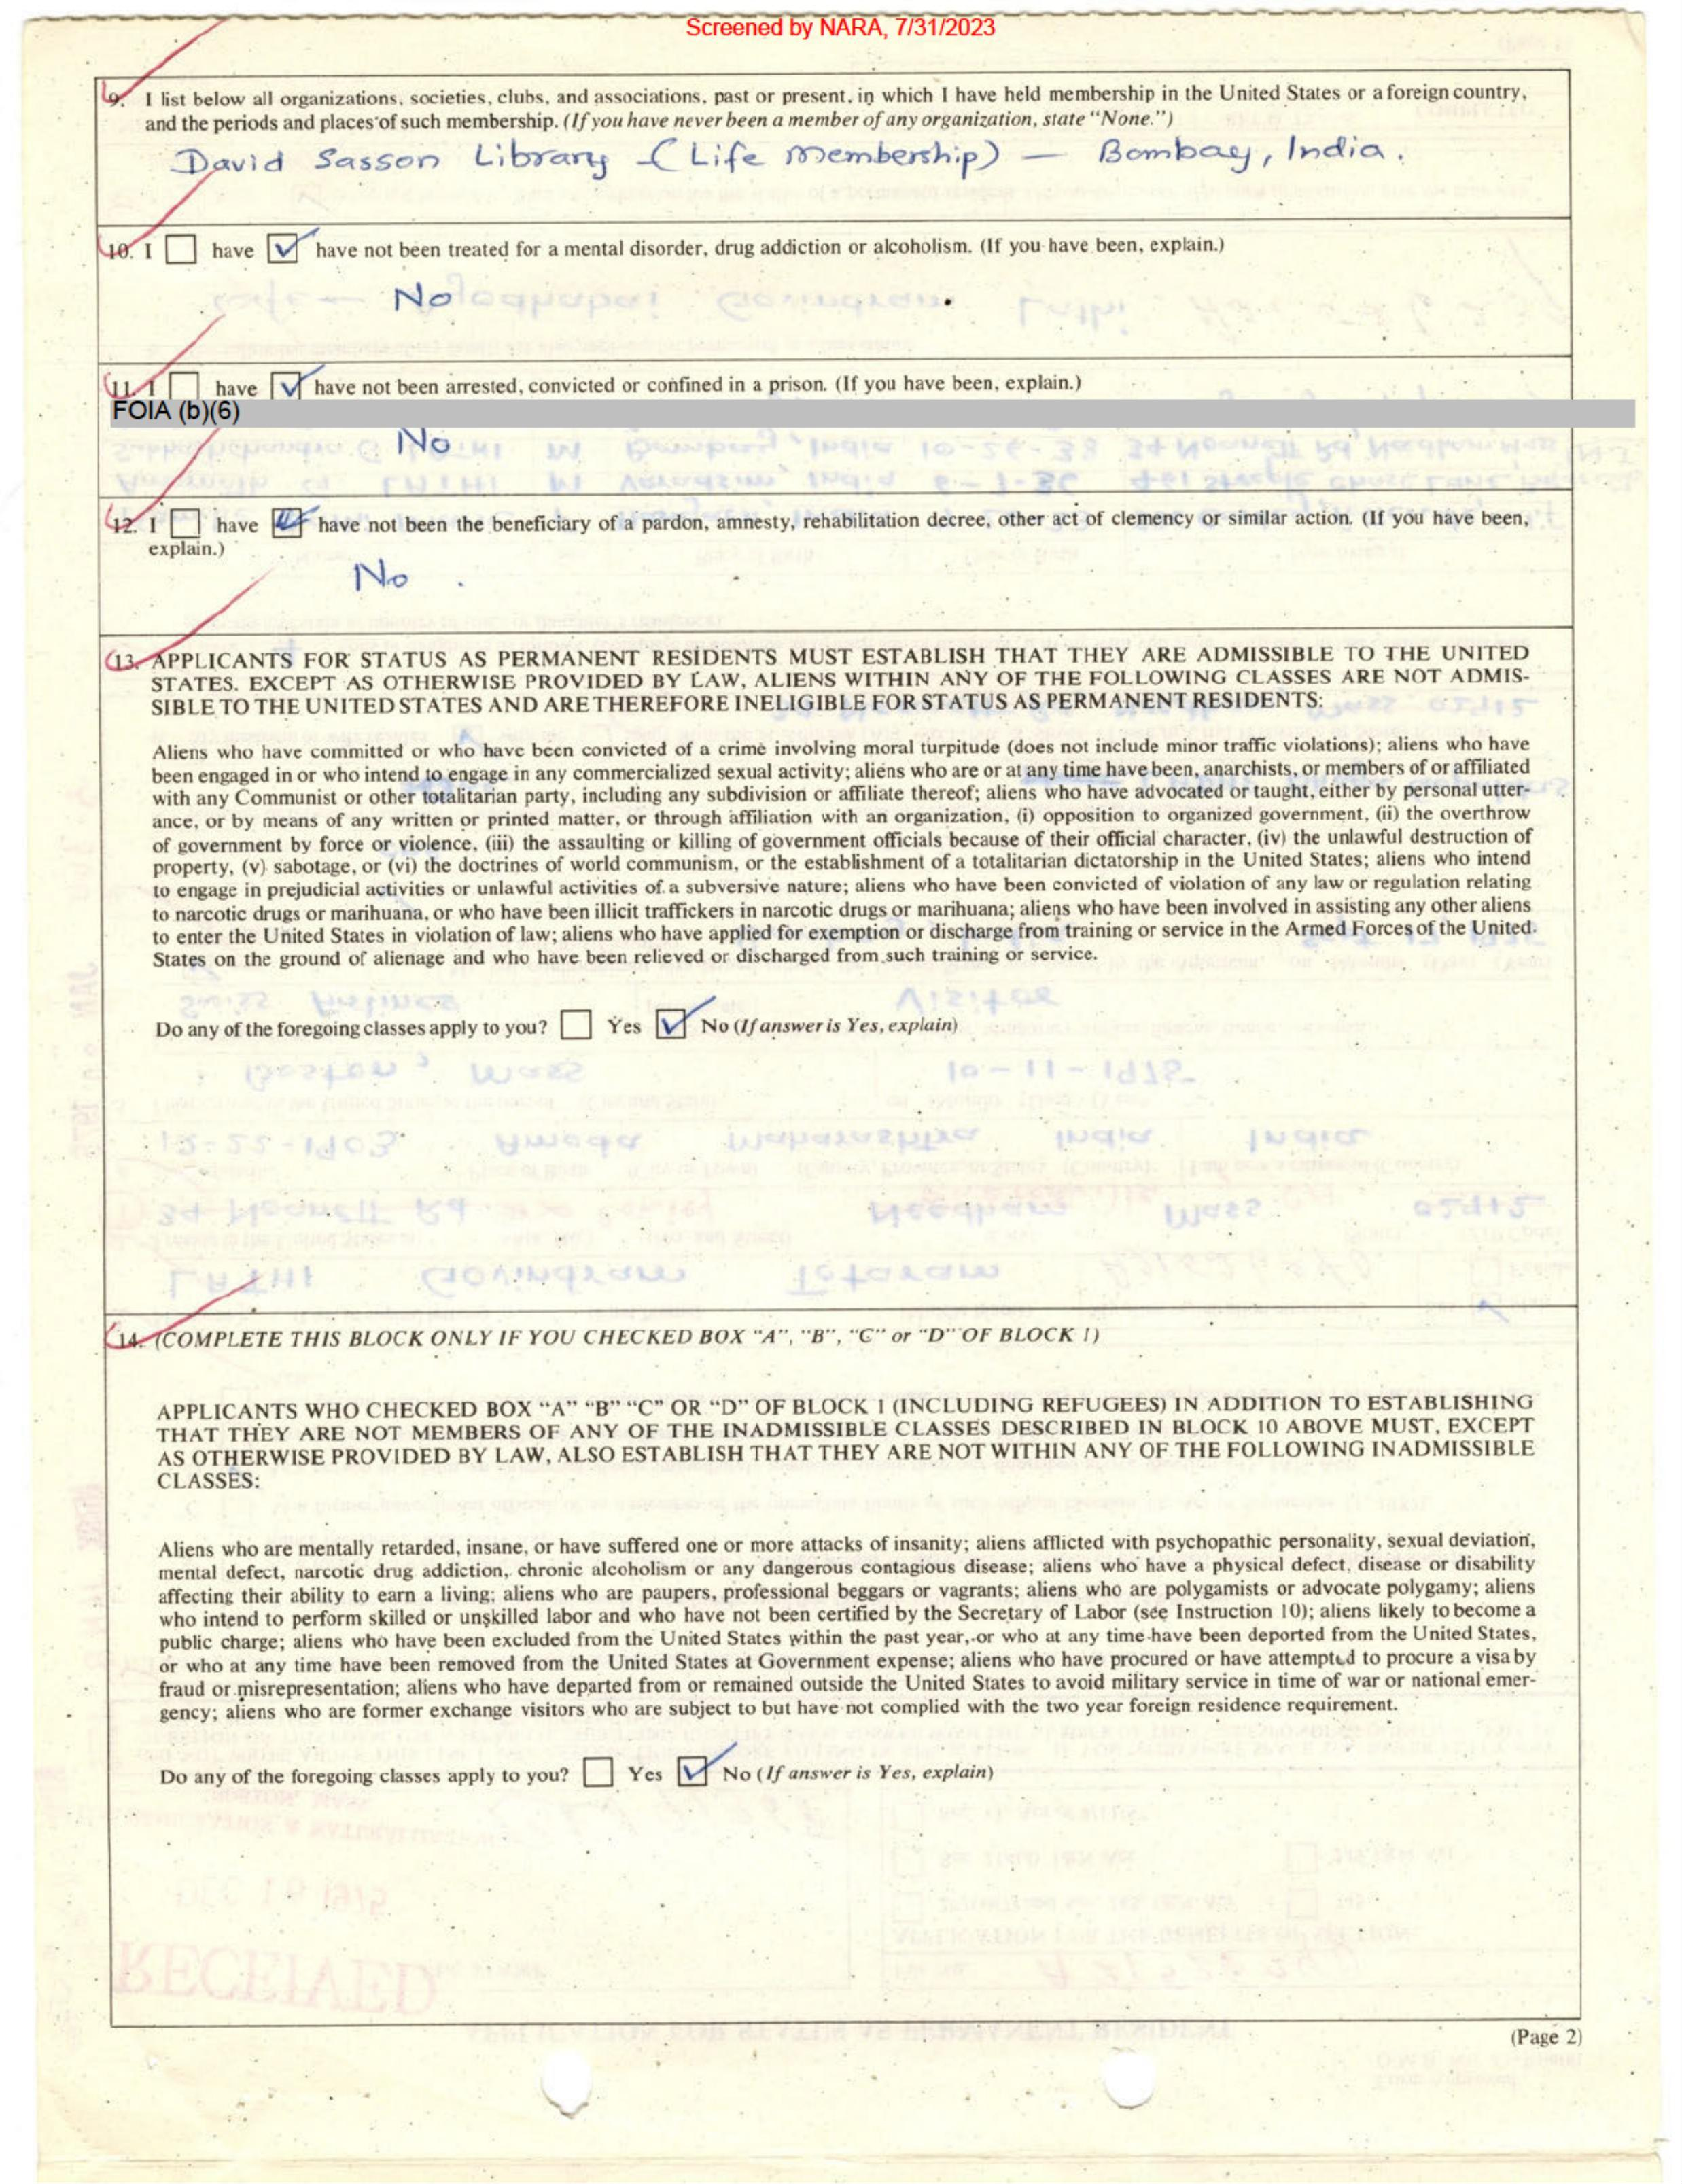 Screened by NARA, 7/31/2023
9. I list below all organizations, societies, clubs, and associations, past or present, in which I have held membership in the United States or a foreign country,
and the periods and places of such membership. (If you have never been a member of any organization, state "None.")
David Sasson Library (Life Membership) — Bombay, India.
10. I have have not been treated for a mental disorder, drug addiction or alcoholism. (If you have been, explain.)
No
11. I have have not been arrested, convicted or confined in a prison. (If you have been, explain.)
FOIA (b)(6)
No
12. I have have not been the beneficiary of a pardon, amnesty, rehabilitation decree, other act of clemency or similar action. (If you have been,
explain.)
No.
13. APPLICANTS FOR STATUS AS PERMANENT RESIDENTS MUST ESTABLISH THAT THEY ARE ADMISSIBLE TO THE UNITED
STATES. EXCEPT AS OTHERWISE PROVIDED BY LAW, ALIENS WITHIN ANY OF THE FOLLOWING CLASSES ARE NOT ADMIS-
SIBLE TO THE UNITED STATES AND ARE THEREFORE INELIGIBLE FOR STATUS AS PERMANENT RESIDENTS:
Aliens who have committed or who have been convicted of a crime involving moral turpitude (does not include minor traffic violations); aliens who have
been engaged in or who intend to engage in any commercialized sexual activity; aliens who are or at any time have been, anarchists, or members of or affiliated
with any Communist or other totalitarian party, including any subdivision or affiliate thereof; aliens who have advocated or taught, either by personal utter-
ance, or by means of any written or printed matter, or through affiliation with an organization, (i) opposition to organized government, (ii) the overthrow
of government by force or violence, (iii) the assaulting or killing of government officials because of their official character, (iv) the unlawful destruction of
property, (v) sabotage, or (vi) the doctrines of world communism, or the establishment of a totalitarian dictatorship in the United States; aliens who intend
to engage in prejudicial activities or unlawful activities of a subversive nature; aliens who have been convicted of violation of any law or regulation relating
to narcotic drugs or marihuana, or who have been illicit traffickers in narcotic drugs or marihuana; aliens who have been involved in assisting any other aliens
to enter the United States in violation of law; aliens who have applied for exemption or discharge from training or service in the Armed Forces of the United
States on the ground of alienage and who have been relieved or discharged from such training or service.
Do any of the foregoing classes apply to you? Yes No (If answer is Yes, explain)
14. (COMPLETE THIS BLOCK ONLY IF YOU CHECKED BOX "A", "B", "C" or "D" OF BLOCK 1)
APPLICANTS WHO CHECKED BOX "A" "B" "C" OR "D" OF BLOCK 1 (INCLUDING REFUGEES) IN ADDITION TO ESTABLISHING
THAT THEY ARE NOT MEMBERS OF ANY OF THE INADMISSIBLE CLASSES DESCRIBED IN BLOCK 10 ABOVE MUST, EXCEPT
AS OTHERWISE PROVIDED BY LAW, ALSO ESTABLISH THAT THEY ARE NOT WITHIN ANY OF THE FOLLOWING INADMISSIBLE
CLASSES:
Aliens who are mentally retarded, insane, or have suffered one or more attacks of insanity; aliens afflicted with psychopathic personality, sexual deviation,
mental defect, narcotic drug addiction, chronic alcoholism or any dangerous contagious disease; aliens who have a physical defect, disease or disability
affecting their ability to earn a living; aliens who are paupers, professional beggars or vagrants; aliens who are polygamists or advocate polygamy; aliens
who intend to perform skilled or unskilled labor and who have not been certified by the Secretary of Labor (see Instruction 10); aliens likely to become a
public charge; aliens who have been excluded from the United States within the past year, or who at any time have been deported from the United States,
or who at any time have been removed from the United States at Government expense; aliens who have procured or have attempted to procure a visa by
fraud or misrepresentation; aliens who have departed from or remained outside the United States to avoid military service in time of war or national emer-
gency; aliens who are former exchange visitors who are subject to but have not complied with the two year foreign residence requirement.
Do any of the foregoing classes apply to you? Yes No (If answer is Yes, explain)
(Page 2)